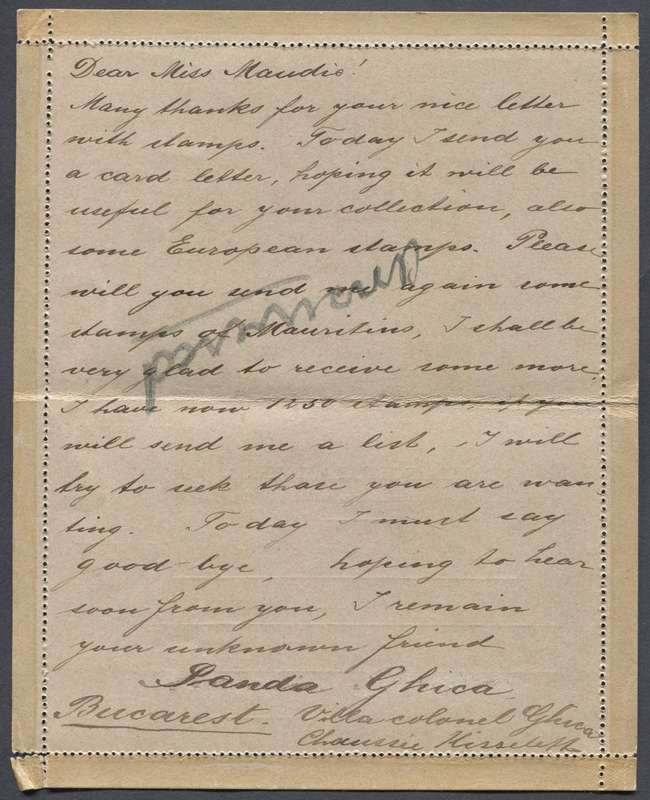 Dear Miss Maudie!
Many thanks for your nice letter
with stamps. To day I send you
a card letter, hoping it will be
useful for your collection, also
some European stamps. Please
will you send me again some
stamps of Mauritius, I shall be
very glad to receive some more,
I have now 1250 stamps, if you
will send me a list, I will
try to seek those you are wan
ting. To day I must say
good-bye, hoping to hear
soon from you, I remain
your unknown friend
Ghica
Bucarest. Villa colonel Ghica
Chaussée Kisseleff